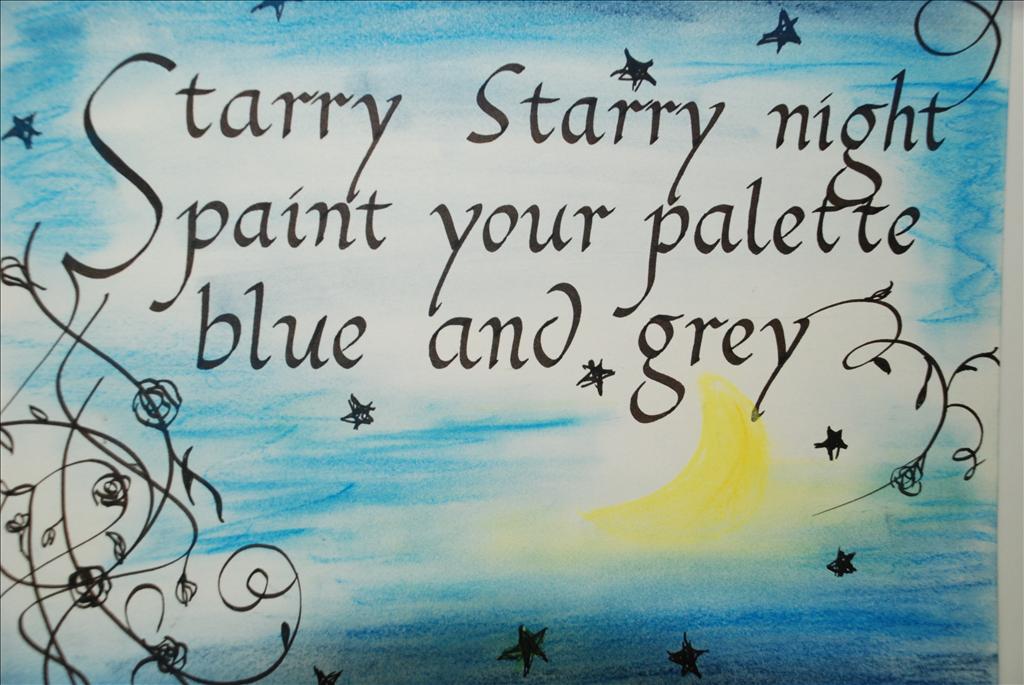 Starry Starry night
paint your palette
blue and grey